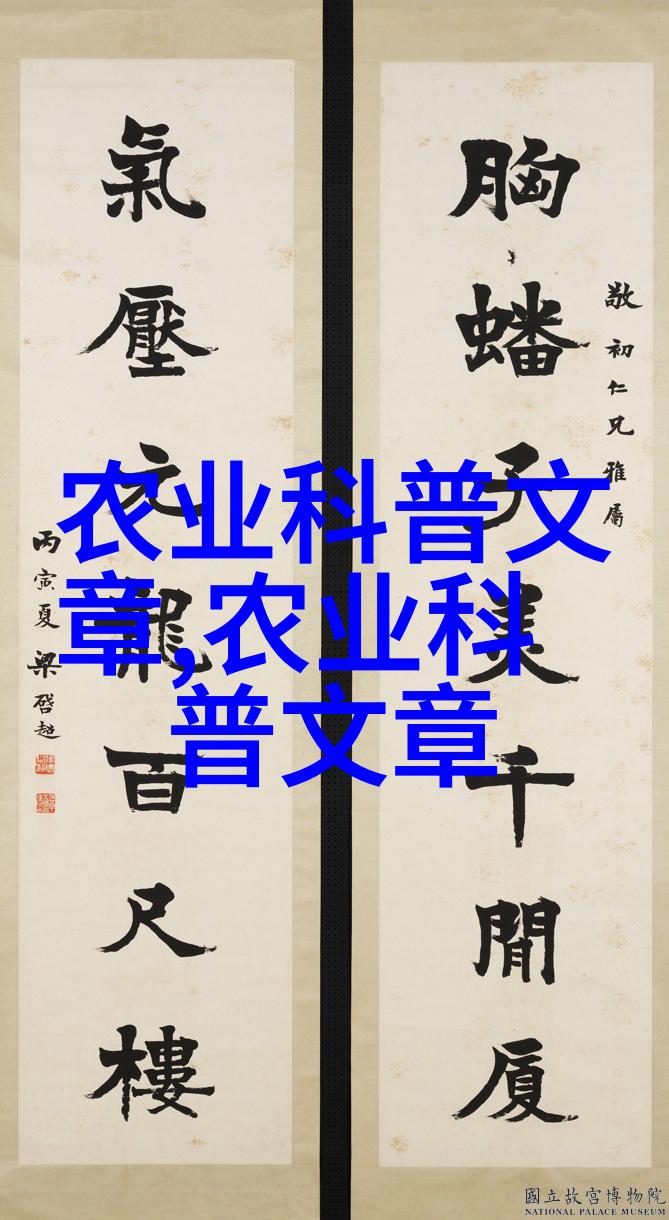 胸蟠子美千間厦
敬初仁兄雅屬
氣壓元龍百尺樓
丙寅夏梁啓超
农业科普文
章,农业科
普文章
國立故宮博物院
NATIONAL PALACE MUSEUM